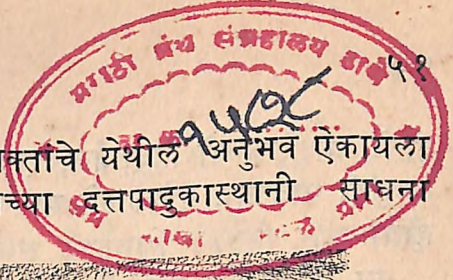 ५१
मराठी ग्रंथ संग्रहालय
१५७८
क्तांचे येथील अनुभव ऐकायला
च्या दत्तपादुकास्थानी साधना